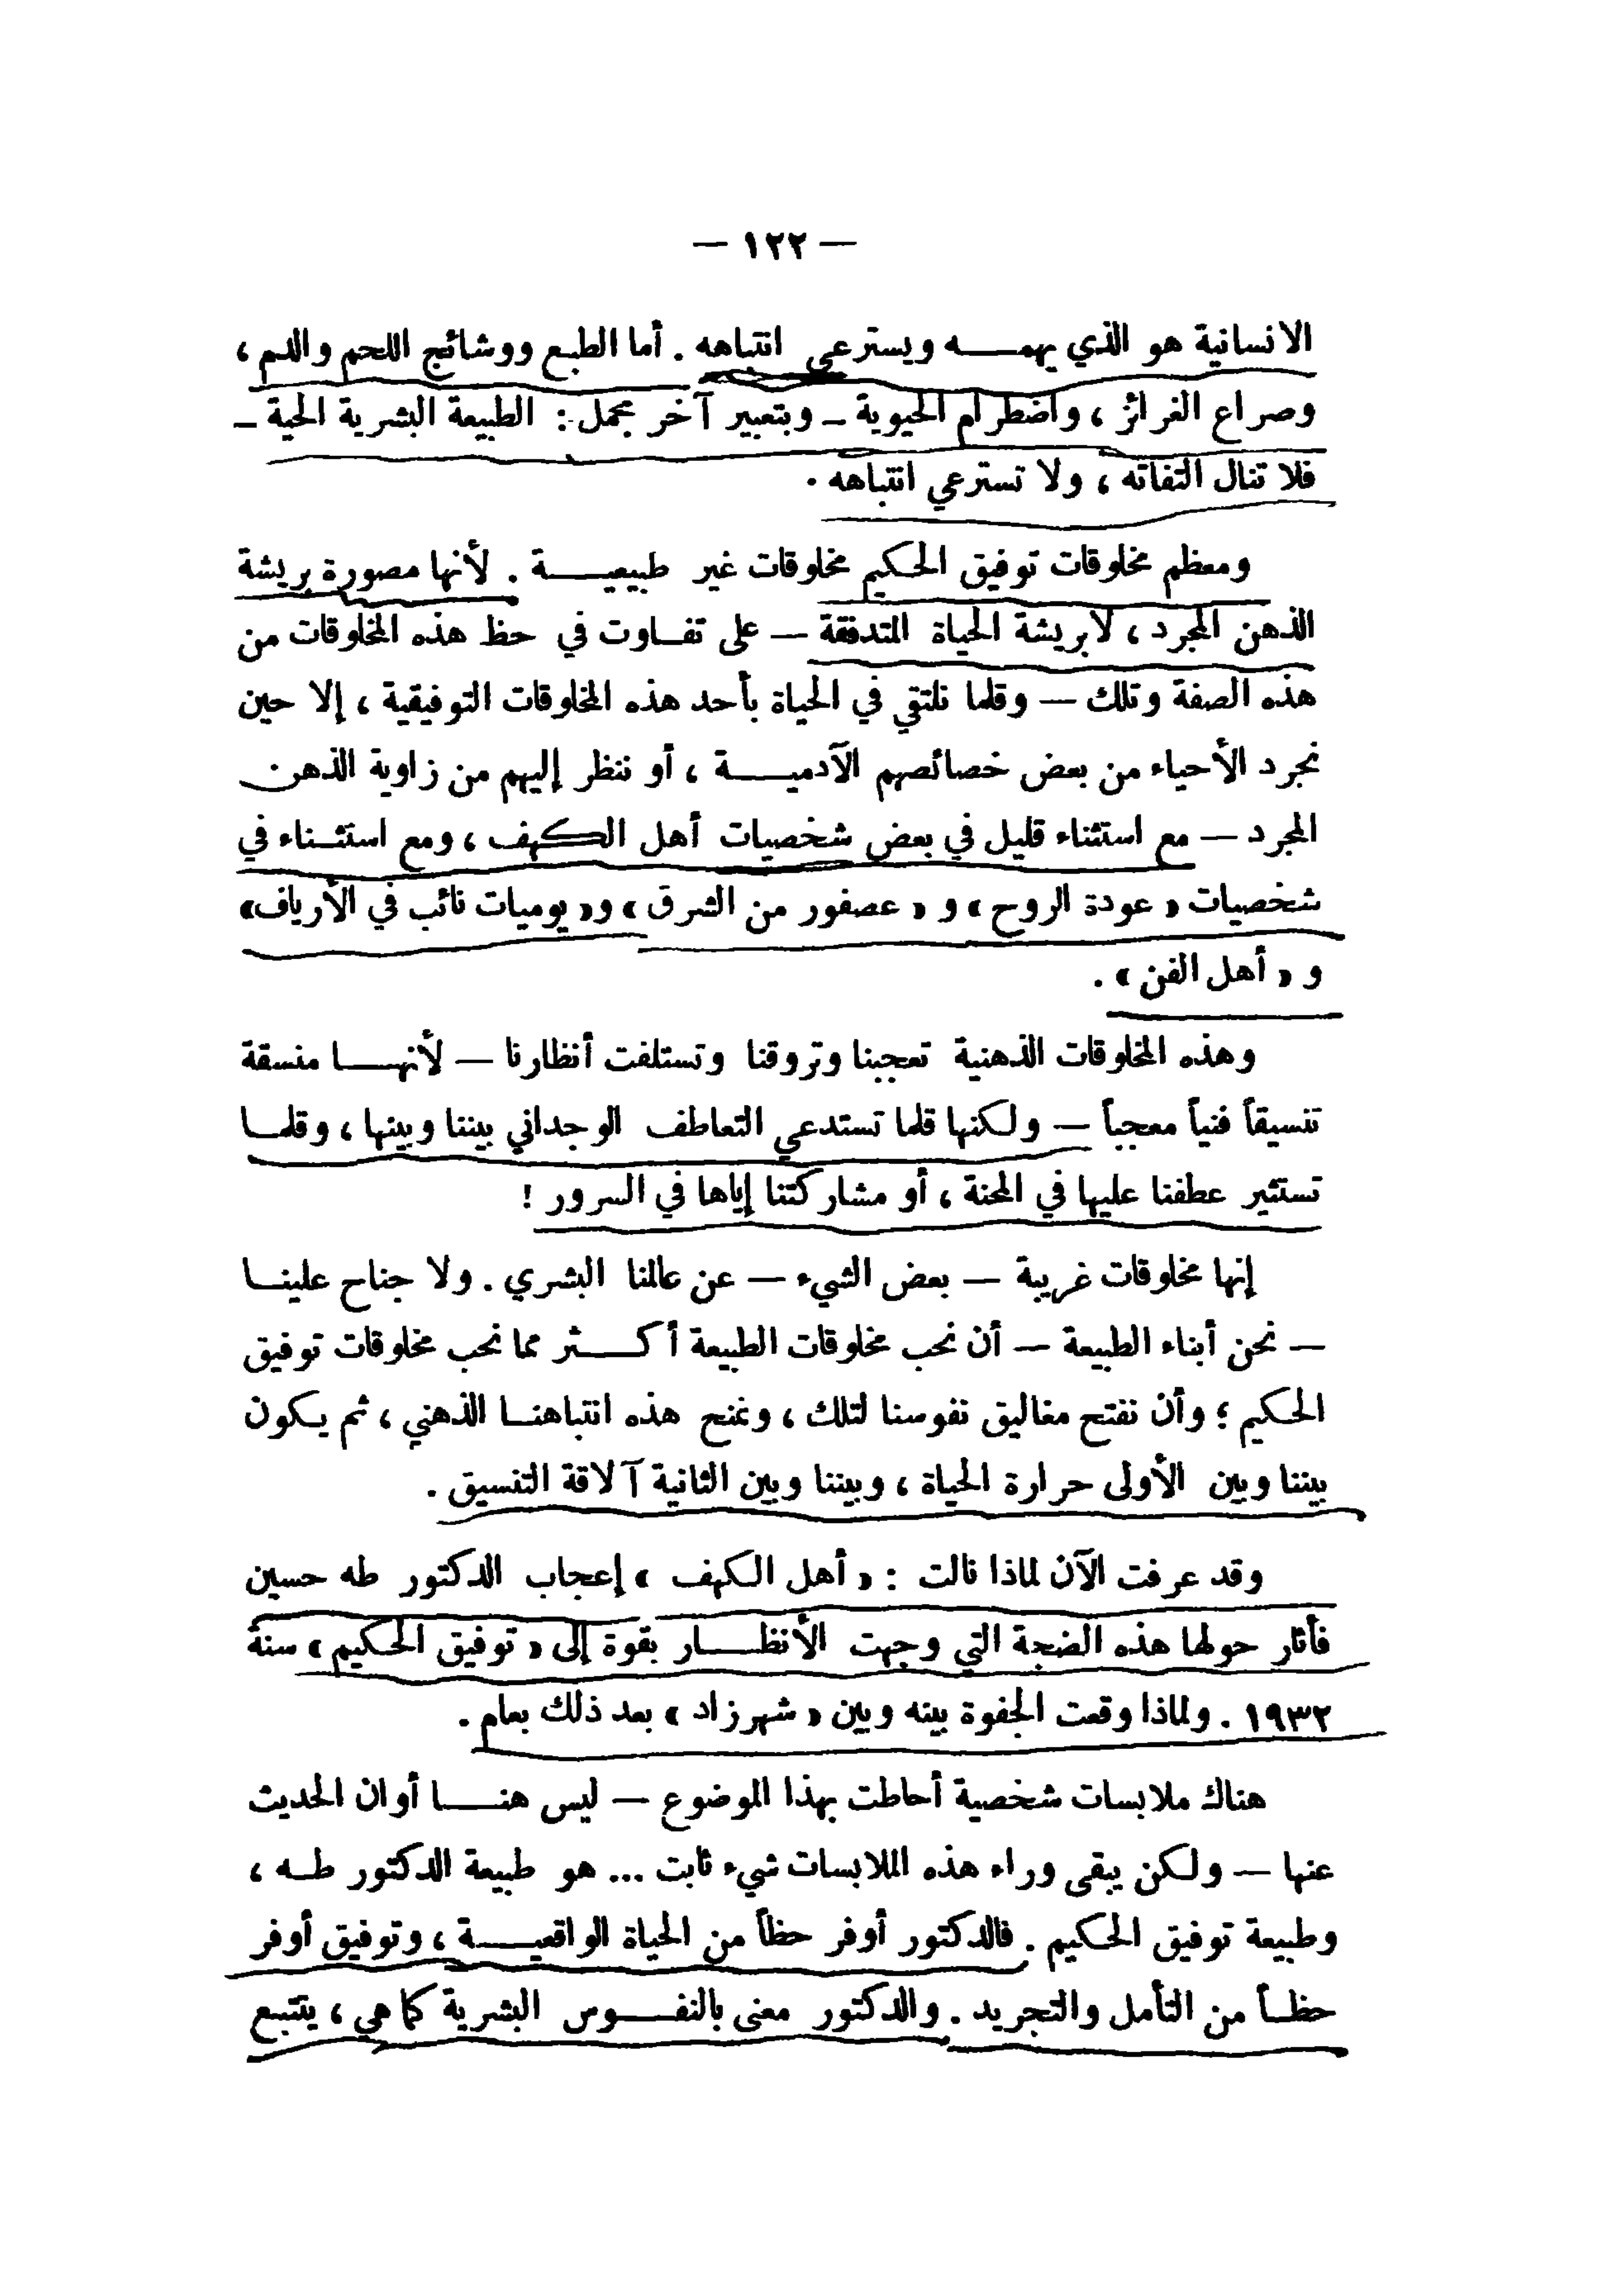 — ١٢٢ —
الانسانية هو الذي يهمـــه ويسترعي انتباهه . أما الطبع ووشائج اللحم والدم ،
وصراع الغرائز ، واضطرام الحيوية ــ وبتعبير آخر مجمل : الطبيعة البشرية الحية ــ
فلا تنال التفاته ، ولا تسترعي انتباهه .
ومعظم مخلوقات توفيق الحكيم مخلوقات غير طبيعيـــة . لأنها مصورة بريشة
الذهن المجرد ، لا بريشة الحياة المتدفقة — على تفـاوت في حظ هذه المخلوقات من
هذه الصفة وتلك — وقلما نلتقي في الحياة بأحد هذه المخلوقات التوفيقية ، إلا حين
نجرد الأحياء من بعض خصائصهم الآدميـــة ، أو ننظر إليهم من زاوية الذهن
المجرد — مع استثناء قليل في بعض شخصيات أهل الكهف ، ومع استثـناء في
شخصيات « عودة الروح » و « عصفور من الشرق » و« يوميات نائب في الأرياف»
و « أهل الفن » .
وهذه المخلوقات الذهنية تعجبنا وتروقنا وتستلفت أنظارنا — لأنهـــا منسقة
تنسيقاً فنياً معجباً — ولكنها قلما تستدعي التعاطف الوجداني بيننا وبينها ، وقلمـا
تستثير عطفنا عليها في المحنة ، أو مشاركتنا إياها في السرور !
إنها مخلوقات غريبة — بعض الشيء — عن عالمنا البشري . ولا جناح علينـا
— نحن أبناء الطبيعة — أن نحب مخلوقات الطبيعة أكـــثر مما نحب مخلوقات توفيق
الحكيم ؛ وأن نفتح مغاليق نفوسنا لتلك ، ونمنح هذه انتباهنـا الذهني ، ثم يكون
بيننا وبين الأولى حرارة الحياة ، وبيننا وبين الثانية آلاقة التفسيق .
وقد عرفت الآن لماذا نالت : « أهل الكهف » إعجاب الدكتور طه حسين
فأثار حولها هذه الضجة التي وجهت الأنظـــار بقوة إلى « توفيق الحكيم » سنة
١٩٣٢ . ولماذا وقعت الجفوة بينه وبين « شهرزاد » بعد ذلك بعام .
هناك ملابسات شخصية أحاطت بهذا الموضوع — ليس هنـــا أوان الحديث
عنها — ولكن يبقى وراء هذه الملابسات شيء ثابت ... هو طبيعة الدكتور طـه ،
وطبيعة توفيق الحكيم . فالدكتور أوفر حظاً من الحياة الواقعيـــة ، وتوفيق أوفر
حظـاً من التأمل والتجريد . والدكتور معنى بالنفـــوس البشرية كما هي ، يتتبع